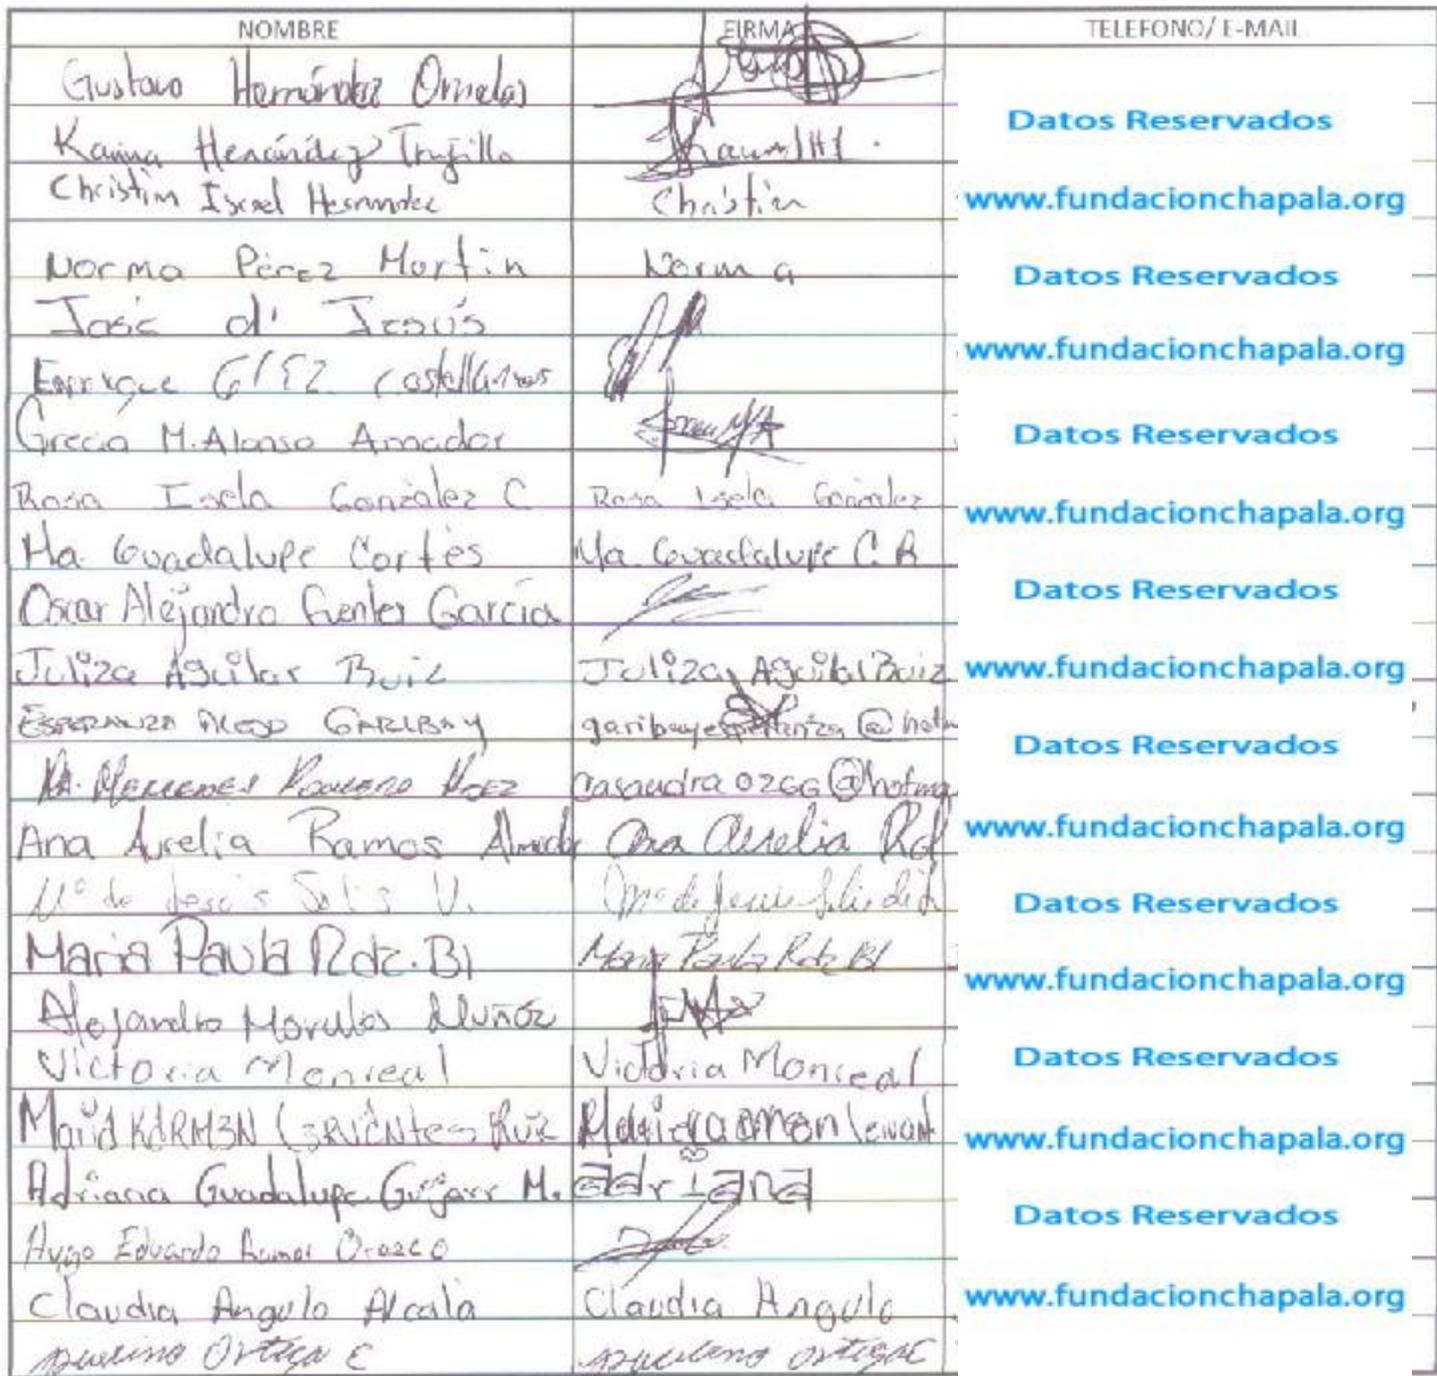 NOMBRE FIRMA TELEFONO/ E-MAIL
Gustavo Hernández Ornelas
Datos Reservados
Karina Hernández Trujillo
Christian Israel Hernandez Christian www.fundacionchapala.org
Norma Pérez Martin Norma Datos Reservados
José d' Jesús
www.fundacionchapala.org
Enrique Castellanos
Grecia M. Alonso Amador Datos Reservados
Rosa Isela González C Rosa Isela González www.fundacionchapala.org
Ma. Guadalupe Cortés Ma. Guadalupe C. R
Oscar Alejandro Fuentes García Datos Reservados
Juliza Aguilar Ruiz Juliza Aguilar Ruiz www.fundacionchapala.org
ESPERANZA GARIBAY garibayesperanza@hotm Datos Reservados
MA. MERCEDES ROMERO casandra0266@hotma www.fundacionchapala.org
Ana Aurelia Ramos Amador Ana Aurelia
Mª de Jesús Solis V. Mª de Jesus Datos Reservados
Maria Paula Rdz. Bl Maria Paula Rdz Bl www.fundacionchapala.org
Alejandro Morales Muñóz
Victoria Monreal Victoria Monreal Datos Reservados
Maria KARM3N C3RVANtes Ruiz www.fundacionchapala.org
Adriana Guadalupe M. adriana Datos Reservados
Hugo Eduardo Ramos Orozco
Claudia Angulo Alcalá Claudia Angulo www.fundacionchapala.org
Ortega E Ortega E